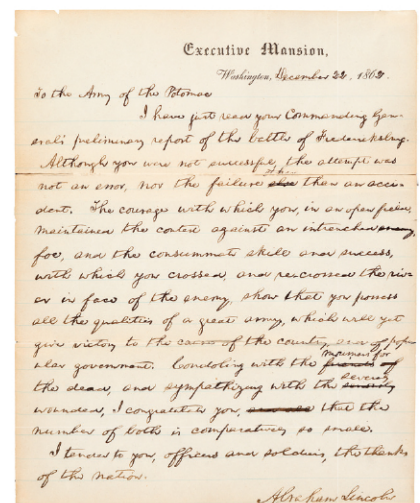 Executive Mansion,
Washington, December 22, 1862.
To the Army of the Potomac
I have just read your Commanding Gen-
eral's preliminary report of the battle of Fredericksburg.
Although you were not successful, the attempt was
not an error, nor the failure other than an acci-
dent. The courage with which you, in an open field,
maintained the contest against an intrenched
foe, and the consummate skill and success,
with which you crossed, and re-crossed the riv-
er in face of the enemy, show that you possess
all the qualities of a great army, which will yet
give victory to the cause of the country, and of popu-
lar government. Condoling with the mourners for
the dead, and sympathizing with the severely
wounded, I congratulate you that the
number of both is comparatively so small.
I tender to you, officers and soldiers, the thanks
of the nation.
Abraham Lincoln